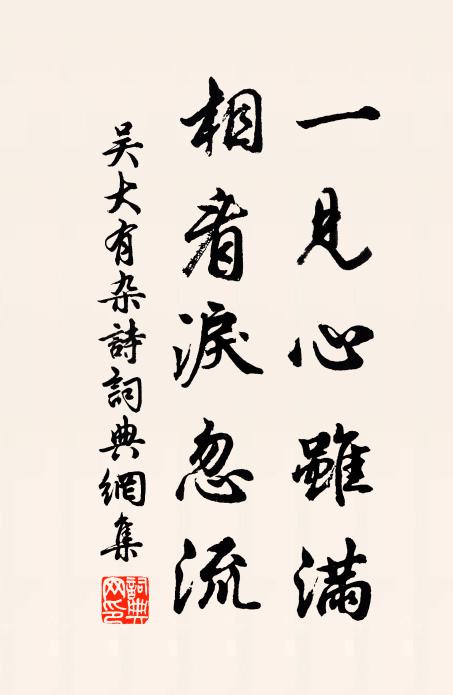 一見心雖滿
相看淚忽流
吴大有杂詩詞典網集
詞典
网印